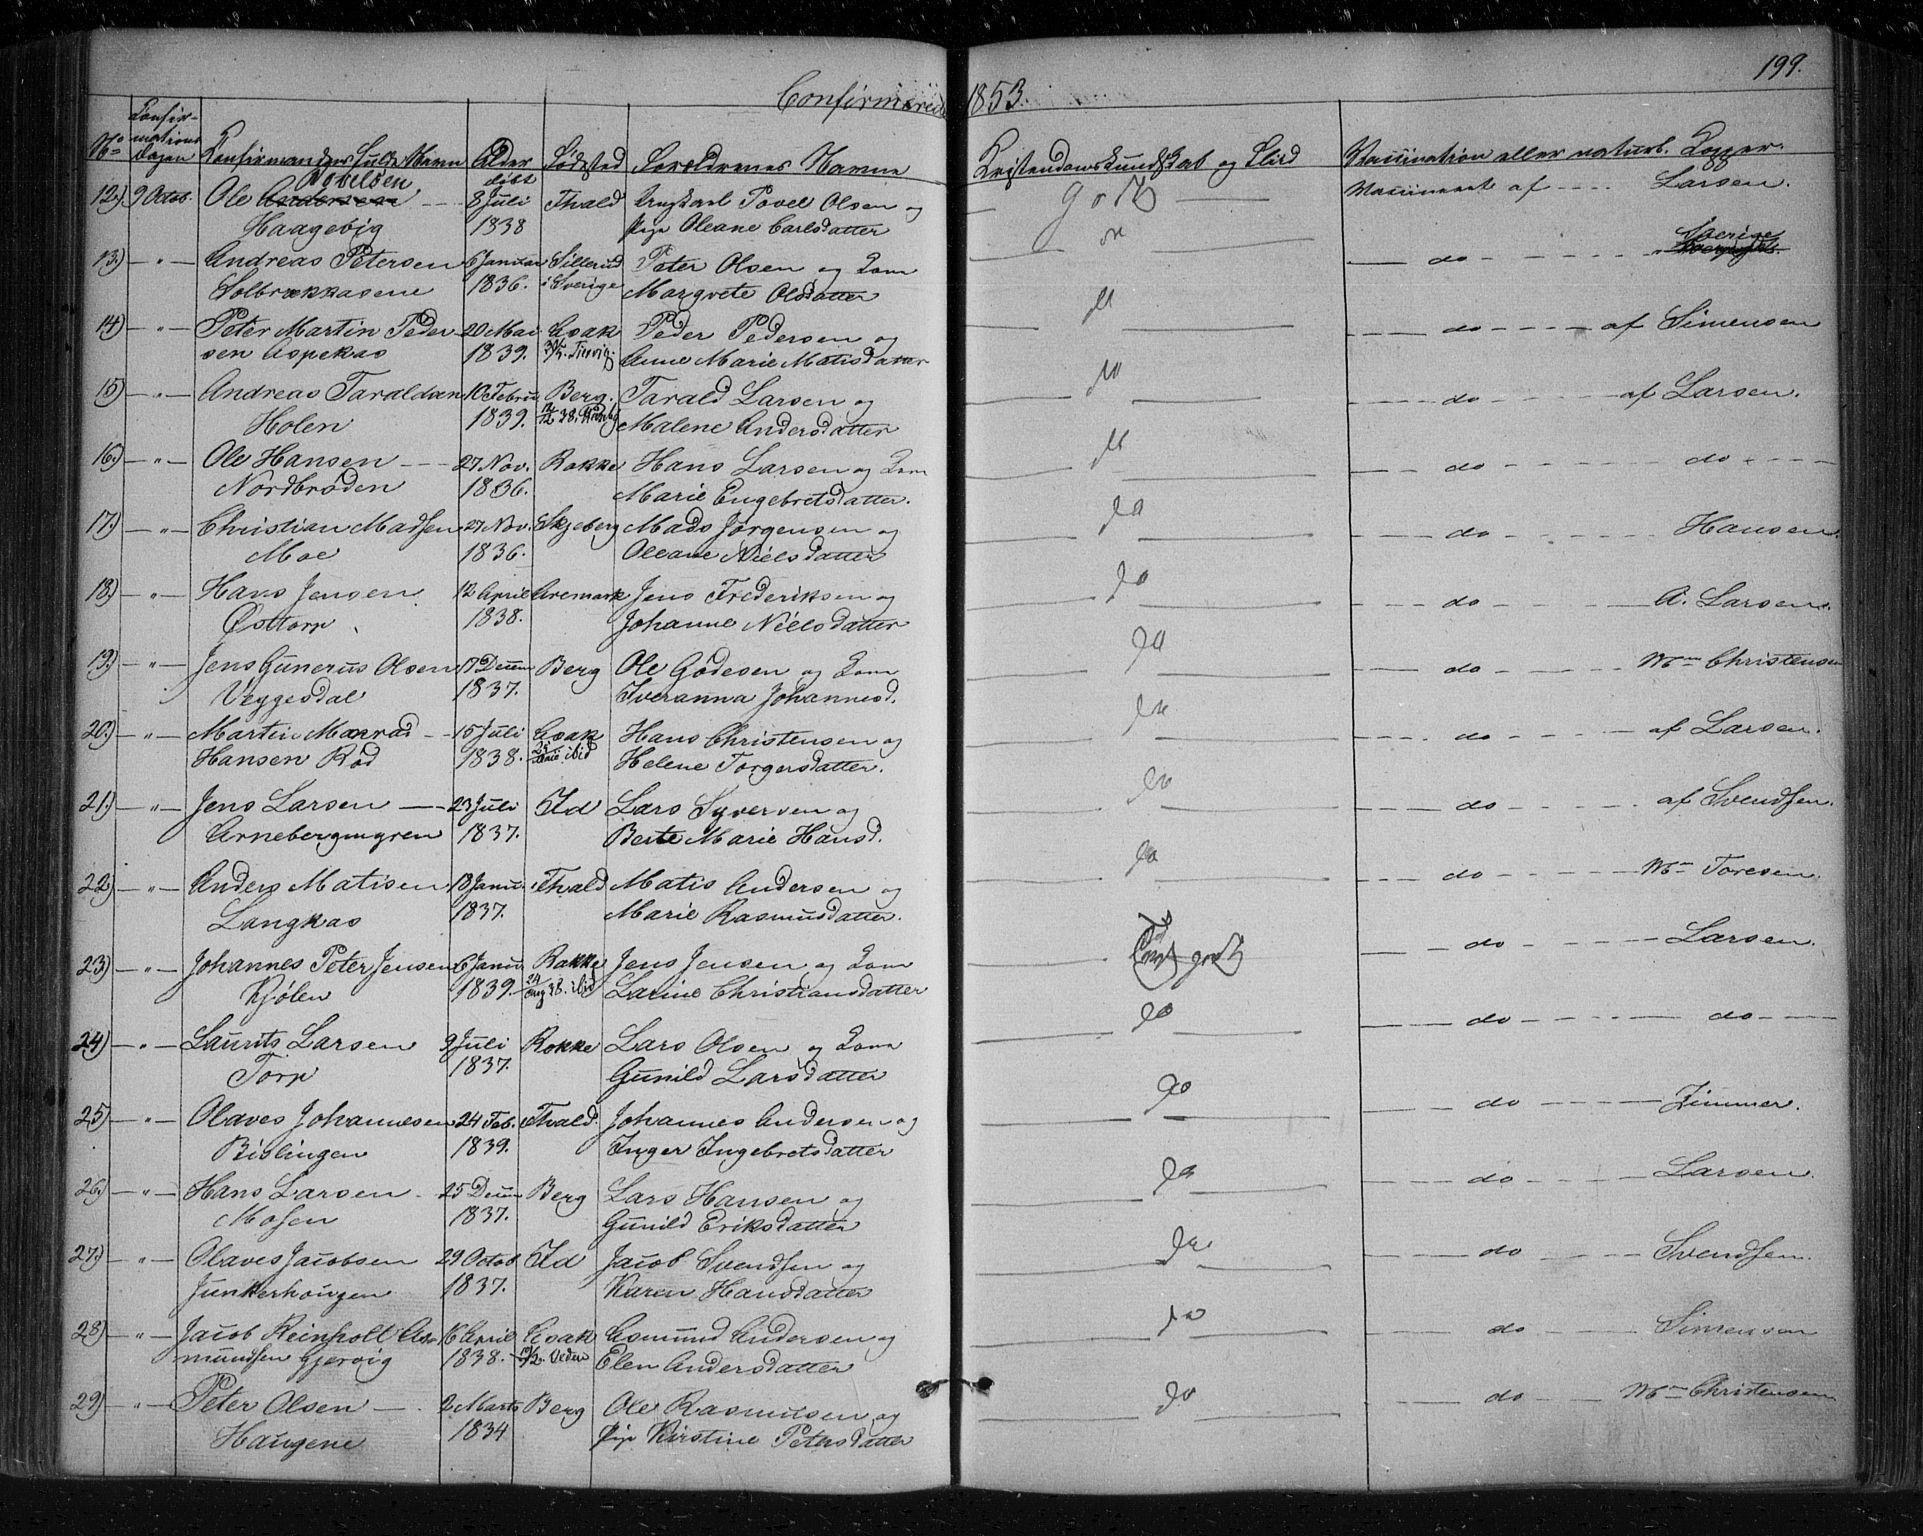 199.
Confirmerede 1853.
No Konfirmations Dagen Konfirmandens fulde Navn Alder døbt Fødested Forældrenes Navne Kristendomskundskab og Flid Vaccination eller naturl. Kopper.
12) 9 Octob. Ole Andersen Povelsen 8 Juli Thald Ungkarl Povel Olsen og Godt Vaccineret af Larsen.
Haagebÿg 1838 Pige Oleane Carlsdatter
13.) " Andreas Petersen 6 Januar Sillerud Peter Olsen og Kone do do Sverige
Solbrækkasene 1836. i Sverige Margrete Olsdatter
14) " Peter Martin Peder- 20 Mai Asak Peder Pedersen og do do af Simensen
sen Aspekas 1839. Anne Marie Matisdatter
15) " Andreas Taraldsen 10 Februar Berg. Tarald Larsen og do do af Larsen.
Holen 1839. Malene Andersdatter
16.) " Ole Hansen 27 Nov. Rokke Hans Larsen og Kone do do do
Nordbrøden 1836. Marie Engebretsdatter.
17.) " Christian Madsen 27 Nov. Skjeberg Mads Jørgensen og do do Hansen.
Moe 1836. Oleane Nielsdatter
18.) " Hans Jensen 12 April Aremark Jens Frederiksen og do do A. Larsen.
Østtorp 1838. Johanne Nielsdatter
19.) " Jens Gunerus Olsen 17 Decem Berg Ole Gødesen og Kone do do Mm Christensen
Veggesdal 1837. Iveranna Johannesd.
20.) " Martin Monrad 15 Juli Asak Hans Christensen og do do af Larsen.
Hansen Rød 1838. ibid Helene Torgersdatter.
21.) " Jens Larsen 23 Juli Id Lars Syversen og do do af Svendsen.
Arnebergmyren 1837. Berte Marie Hansd.
22) " Anders Matisen 13 Janu. Thald Matis Andersen og do do Mm Toresen.
Langkas 1837. Marie Rasmusdatter.
23) " Johannes Peter Jensen 6 Janu. Rokke Jens Jensen og Kone godt do Larsen.
Kjølen 1839. 24 Aug 38. ibid Larine Christiansdatter
24) " Laurits Larsen 9 Juli Rokke Lars Olsen og Kone do do do
Torp 1837. Gunild Larsdatter
25) " Olaves Johannesen 24 Feb. Thald. Johannes Andersen og do do Zimmer.
Bislingen 1839. Inger Ingebretsdatter
26.) " Hans Larsen 25 Decem Berg Lars Hansen og do do Larsen.
Mosen 1837. Gunild Eriksdatter
27.) " Olaves Jacobsen 29 Octob Id Jacob Svendsen og do do Svendsen.
Junkerhougen 1837. Karen Hansdatter
28) " Jacob Reinholt As- 16 April Asak Asmund Andersen og do do Simensen
mundsen Gjervig 1838. Elen Andersdatter
29) " Peter Olsen 2 Marts Berg Ole Rasmussen og do do Mm Christensen
Haugene 1834 Pige Kirstine Petersdatter